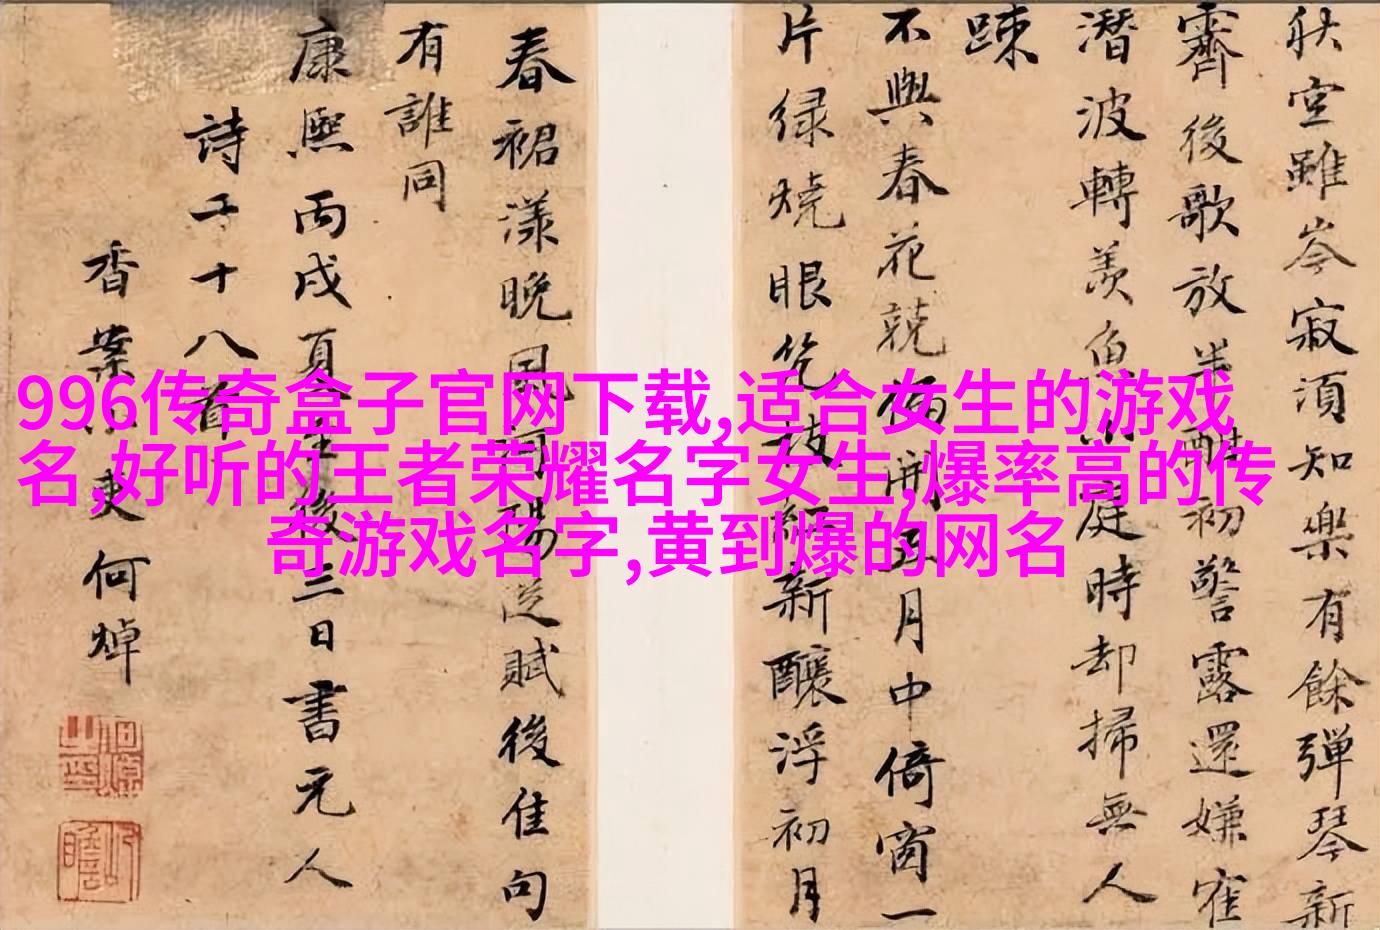 996传奇盒子官网下载,适合女生的游戏
名,好听的王者荣耀名字女生,爆率高的传
奇游戏名字,黄到爆的网名
秋空雖岑寂須知樂有餘彈琴新
霽後歌放半酣初警露還嫌寉
潛波轉羨魚小庭時却掃無人
踈
不與春花競偏開五月中倚窗一
片绿燒眼幾枝紅新釀浮初月
春裙漾晚風河陽從賦後佳句
有誰同
康熙丙戌夏至後三日書元人
詩二十八首
香案小吏何焯